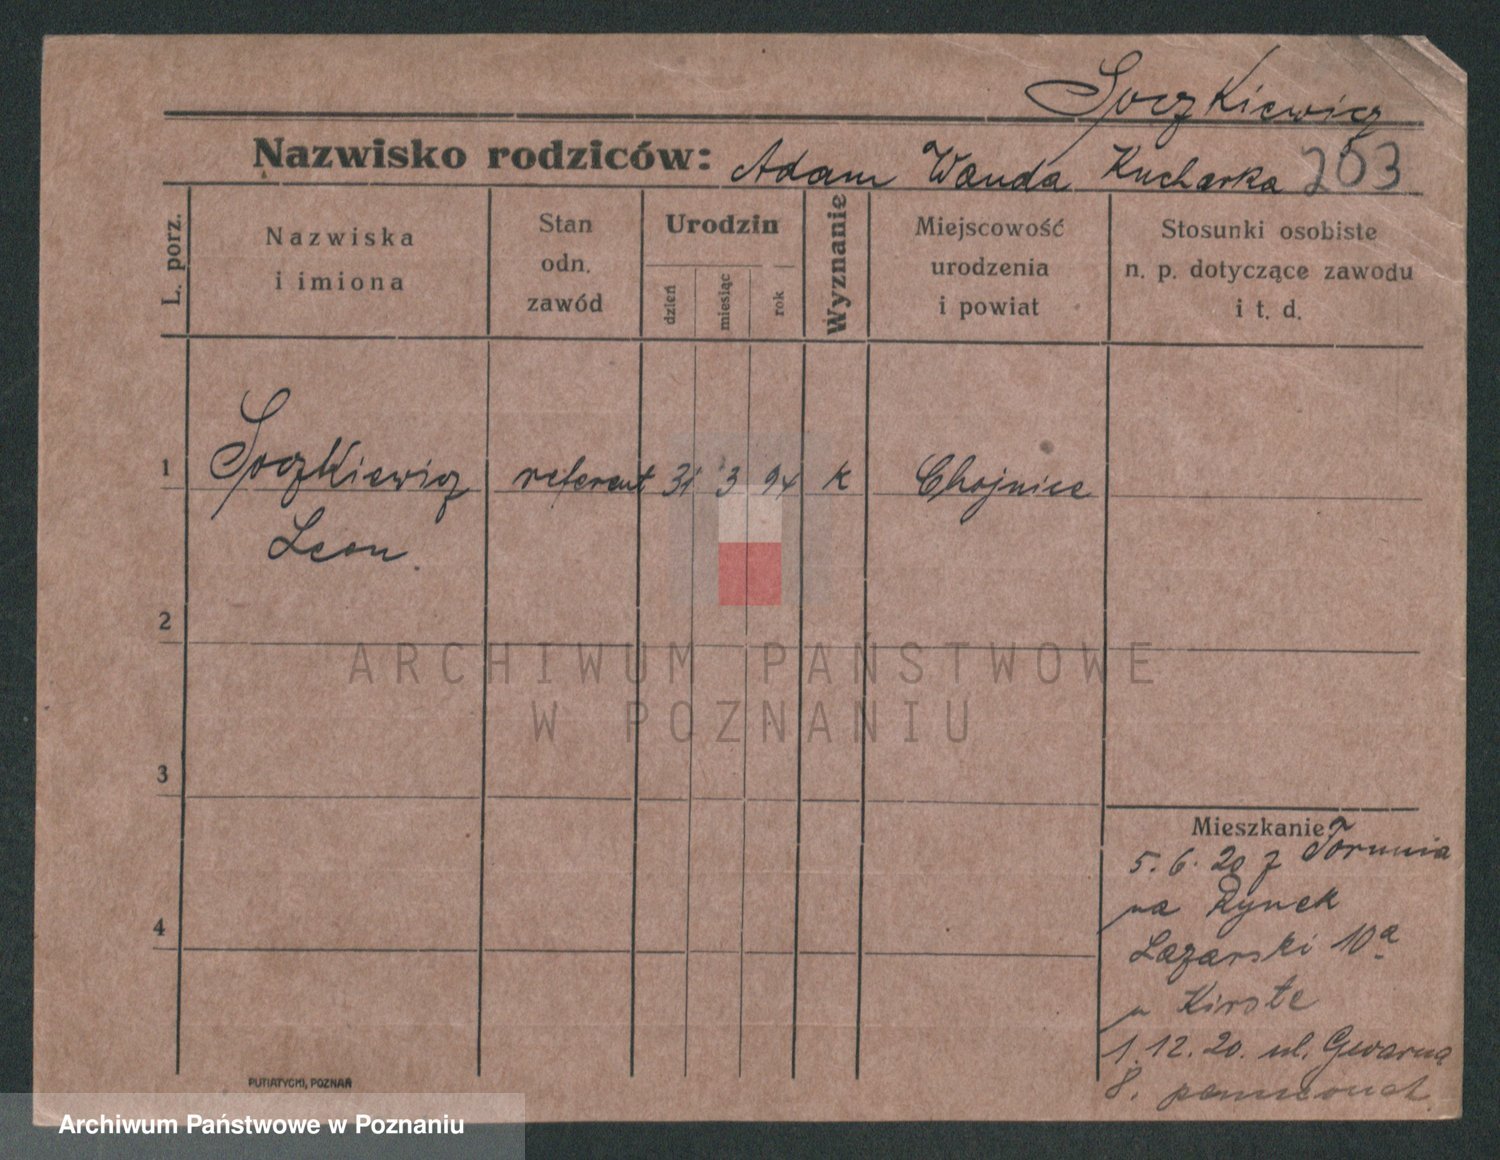 Soczkiewicz
Nazwisko rodziców: Adam Wanda Kucharska 203
L. porz.
Nazwiska
i imiona
Stan
odn.
zawód
Urodzin
dzień
miesiąc
rok
Wyznanie
Miejscowość
urodzenia
i powiat
Stosunki osobiste
n. p. dotyczące zawodu
i t. d.
1 Soczkiewicz referent 31 3 94 k Chojnice
Leon.
2
ARCHIWUM PAŃSTWOWE
W POZNANIU
3
Mieszkanie
5.6.20 z Torunia
na Rynek
4
Lazarski 10a
u Kirste
1.12.20. ul. Gwarna
8.
PUTIATYCKI, POZNAŃ
Archiwum Państwowe w Poznaniu